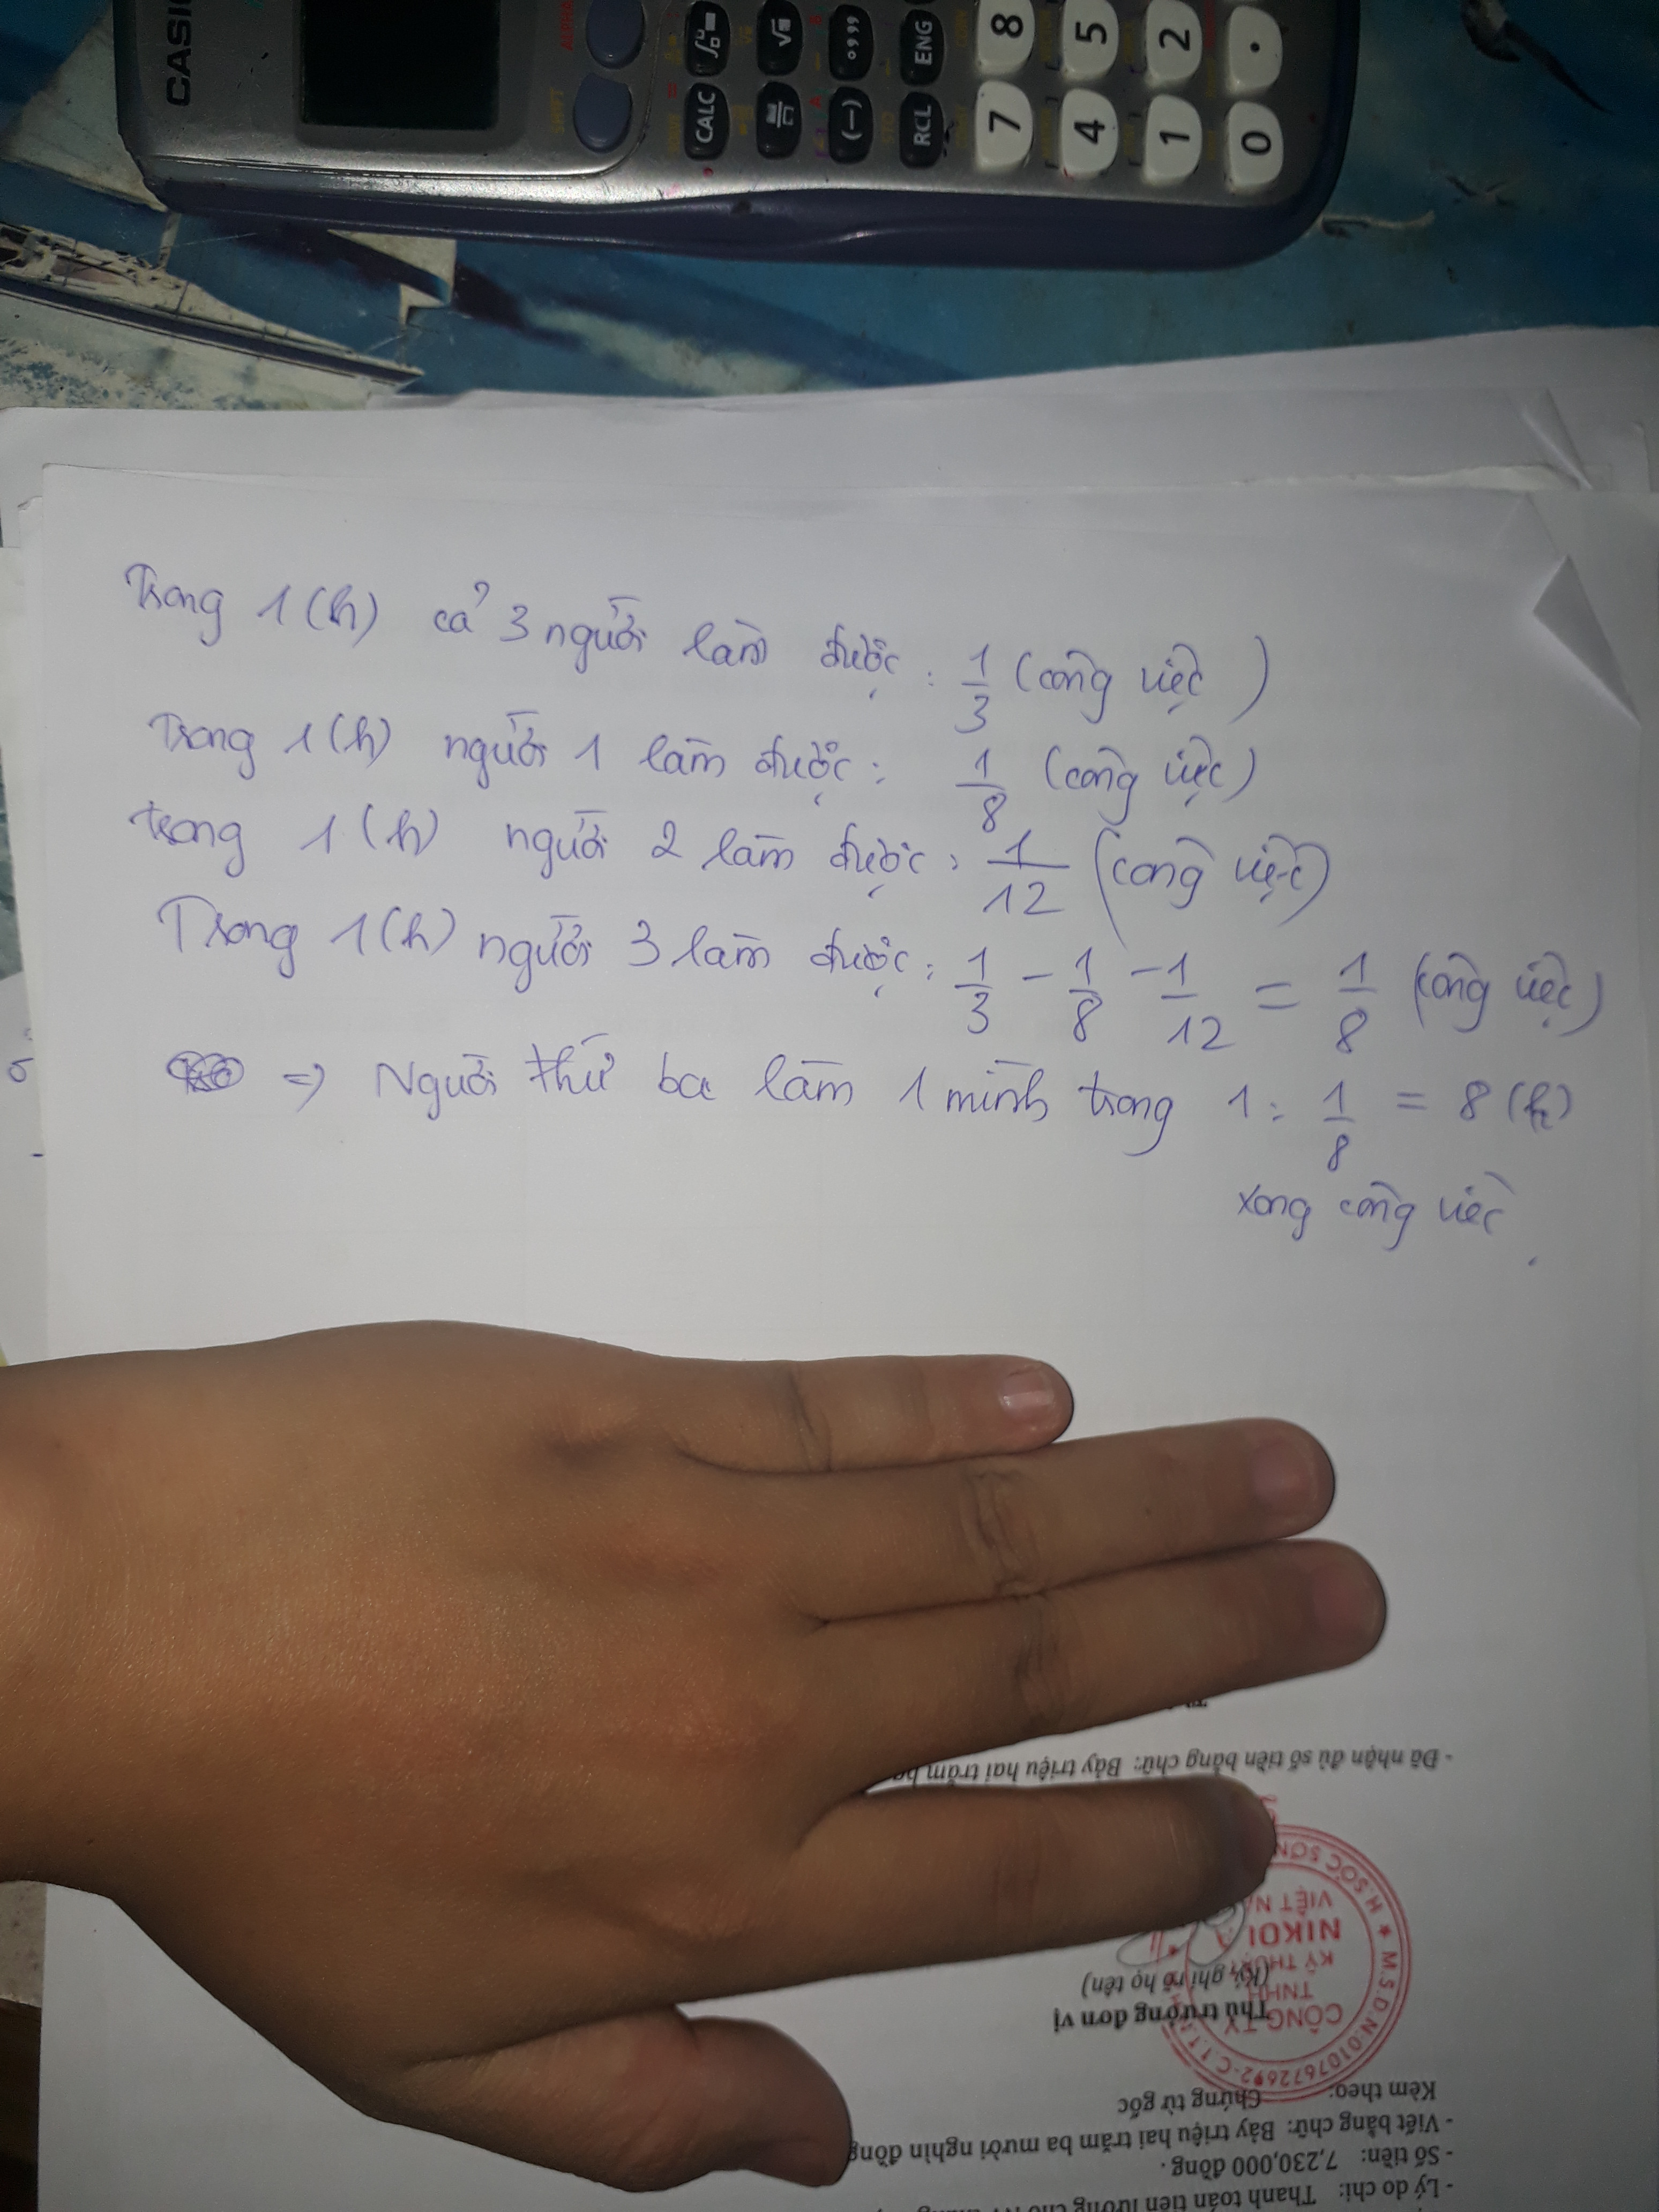 CASIO
SHIFT
ALPHA
CALC
√
(−)
°,,,
RCL ENG
7 8
4 5
1 2
0 .
Trong 1(h) cả 3 người làm được: 1/3 (công việc)
Trong 1(h) người 1 làm được: 1/8 (công việc)
trong 1(h) người 2 làm được: 1/12 (công việc)
Trong 1(h) người 3 làm được: 1/3 - 1/8 - 1/12 = 1/8 (công việc)
=> Người thứ ba làm 1 mình trong 1: 1/8 = 8 (h)
xong công việc
- Lý do chi: Thanh toán tiền lương cho
- Số tiền: 7,230,000 đồng.
- Viết bằng chữ: Bảy triệu hai trăm ba mươi nghìn đồng
Kèm theo: Chứng từ gốc
Thủ trưởng đơn vị
(Ký, ghi rõ họ tên)
M.S.D.N:0107672692-C.T.T
CÔNG TY
TNHH
KỸ THUẬT
NIKOI
VIỆT N
H SÓC SƠN
- Đã nhận đủ số tiền bằng chữ: Bảy triệu hai trăm